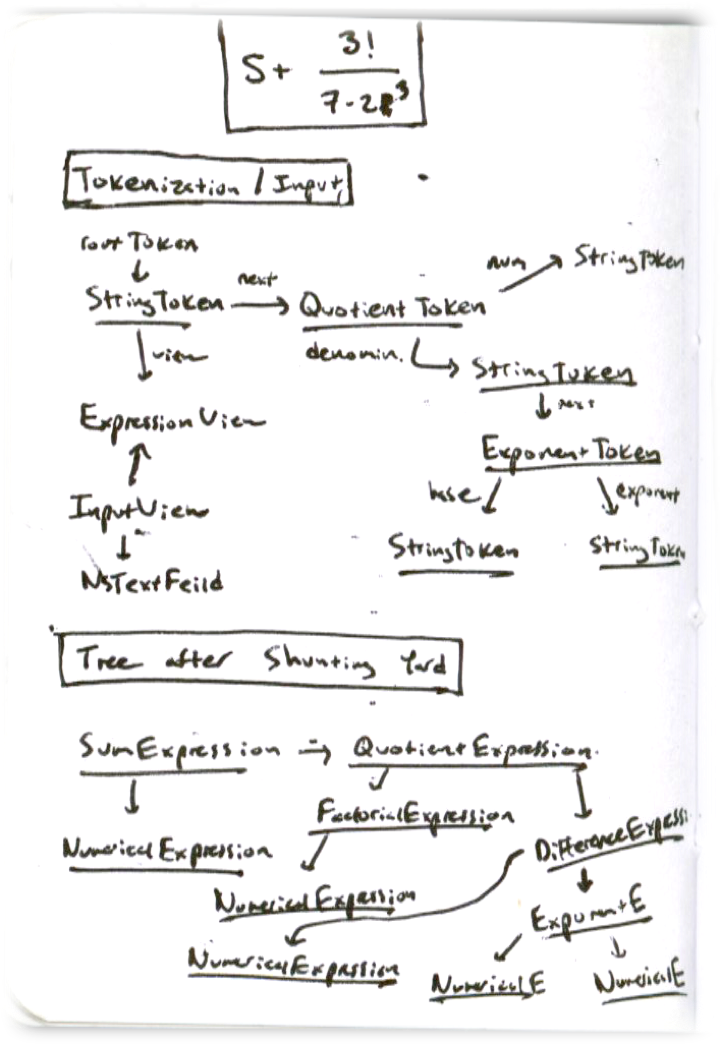 5 + 3!
7 - 2 3
Tokenization / Input
root Token
StringToken next Quotient Token num StringToken
view denomin. StringToken
next
Expression View Exponent Token
base exponent
InputView StringToken StringToken
NSTextFeild
Tree after Shunting Yard
SumExpression QuotientExpression
FactorialExpression
NumericalExpression DifferenceExpressi
NumericalExpression
ExponentE
NumericalExpression NumericalE NumericalE